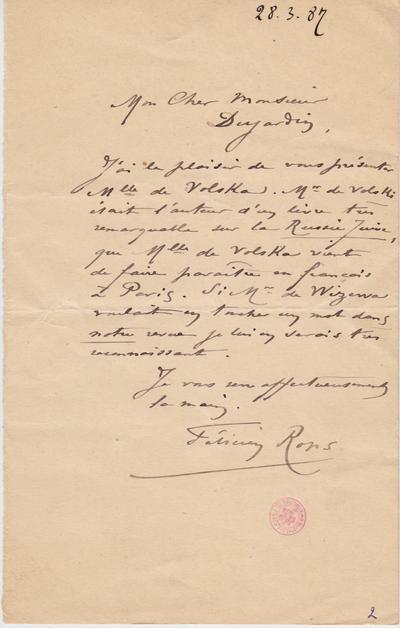 28.3.87
Mon Cher Monsieur
Dujardin,
J'ai le plaisir de vous présenter
Mlle de Volska. Mr de Volski
était l'auteur d'un livre très
remarquable sur la Russie Juive,
que Mlle de Volska vient
de faire paraître en français
à Paris. Si Mr de Wizewa
voulait en toucher un mot dans
notre revue je lui en serais très
reconnaissant.
Je vous serre affectueusement
la main.
Félicien Rops
2